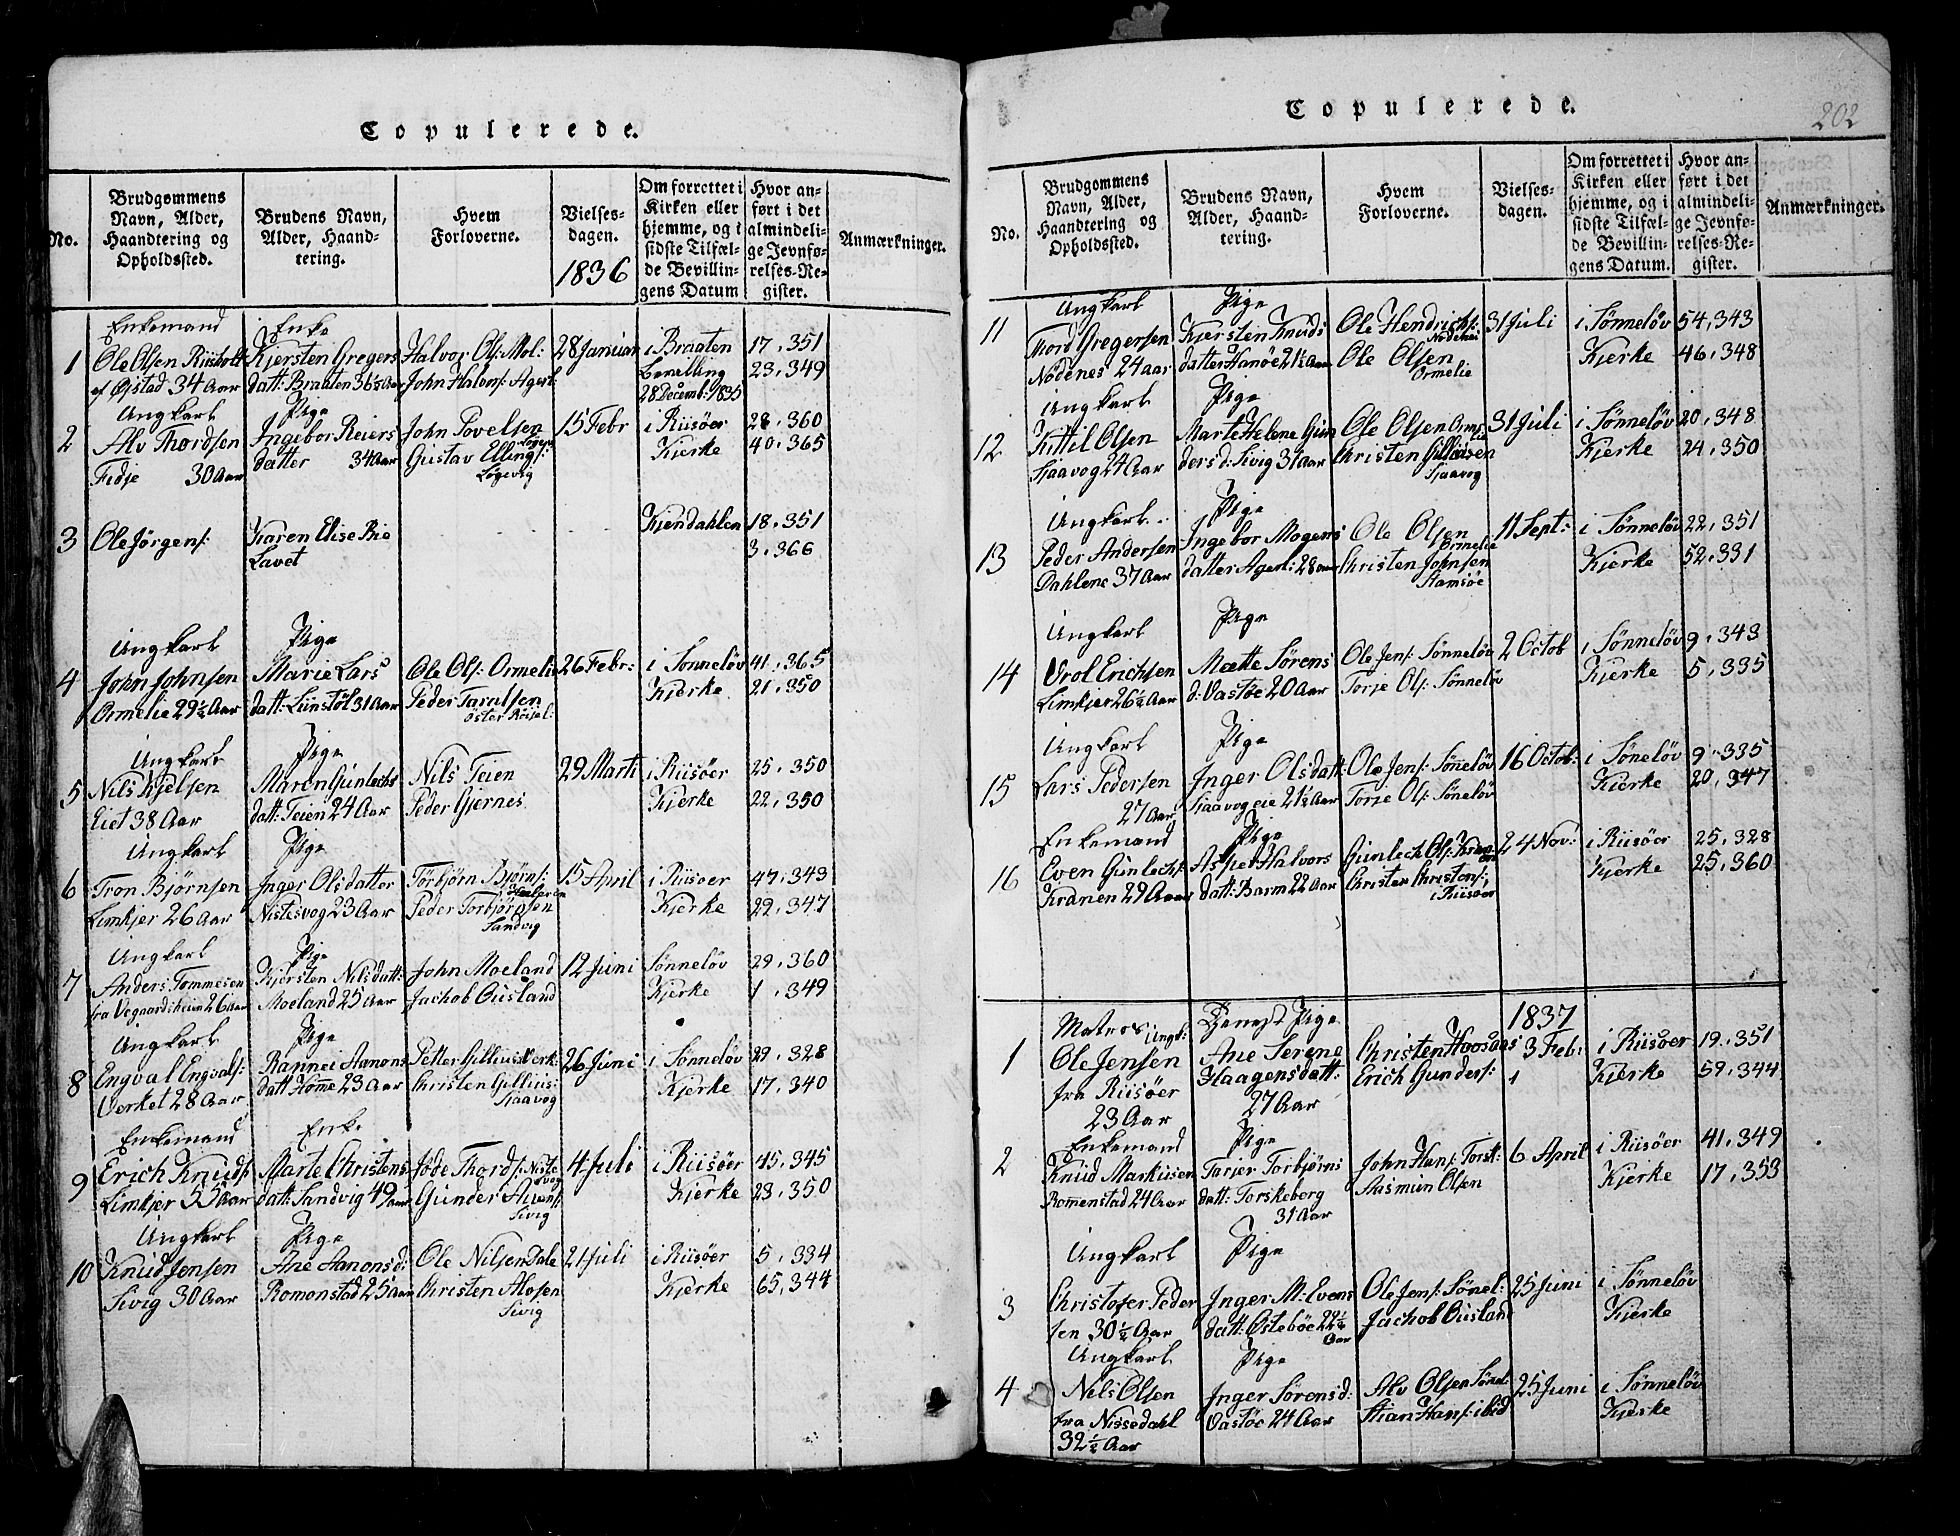 Copulerede.
No.
Brudgommens Navn, Alder, Haandtering og Opholdssted.
Brudens Navn, Alder, Haandtering.
Hvem Forloverne.
Vielsesdagen.
1836
Om forrettet i Kirken eller hjemme, og i sidste Tilfælde Bevillingens Datum
Hvor anført i det almindelige Jevnførelses-Register.
Anmærkninger.
Enkemand Enke
1 Ole Olsen Kjersten Gregers Halvor Ols: Mol: 28 Januar i Braaten 17, 351
af Østad 34 Aar datt: Braaten 36½ Aar John Halvors: Agerl: Bevelling 23, 349
28 Decemb: 1835
Ungkarl Pige
2 Alv Thordsen Ingebor Reiers John Povelsen 15 Febr i Riisöer 28, 360
Fidje 30 Aar datter 34 Aar Gustav Ellings: Kjerke 40, 365
Lögevig
3 Ole Jörgens: Karen Elise Kjendahlen 18, 351
3, 366
Ungkarl Pige
4 John Johnsen Marie Lars Ole Ols: Ormelie 26 Febr: i Sönneløv 41, 365
Ormelie 29½ Aar datt: Lunstöl 31 Aar Peder Kjerke 21, 350
Ungkarl Pige
5 Nils Kjelsen Maren Gunlechs Nils Teien 29 Marti i Riisöer 25, 350
Eiet 38 Aar datt: Teien 24 Aar Peder Gjernes Kjerke 22, 350
Ungkarl Pige
6 Tron Bjørnsen Inger Olsdatter Törbjörn Bjørns: 15 April i Riisoer 47, 343
Limkjer 26 Aar Nistesvog 23 Aar Peder Torbjörnsen Kjerke 29, 347
Sandvig
Ungkarl Pige
7 Anders Tommesen Kjersten Nilsdatt: John Moeland 12 Juni Sönneløv 29, 360
fra Vegaardsheien 26 Aar Moeland 25 Aar Jachob Ousland Kjerke 1, 349
Ungkarl Pige
8 Engval Engvals: Rannei Aanons Petter Gillius: 26 Juni i Sönneløv 29, 328
Verket 28 Aar datt: Home 23 Aar Christen Gillius: Kjerke 17, 340
Sjaavog
Enkemand Enke
9 Erich Knuds: Marte Christens Thords: 4 Juli i Riisöer 45, 345
Limkjer 55 Aar datt: Sandvig 49 aar Gunder Kjerke 23, 350
Sivig
Ungkarl Pige
10 Knud Jensen Ane Aanonsd: Ole Nilsen Dale 21 Juli i Riisöer 5, 334
Sivig 30 Aar Romonstad 25 Aar Christen Kjerke 65, 344
Sivig
Copulerede.
202
No.
Brudgommens Navn, Alder, Haandtering og Opholdssted.
Brudens Navn, Alder, Haandtering.
Hvem Forloverne.
Vielsesdagen.
Om forrettet i Kirken eller hjemme, og i sidste Tilfælde Bevillingens Datum.
Hvor anført i det almindelige Jevnførelses-Register.
Anmærkninger.
Ungkarl Pige
11 Thord Gregersen Kjersten Knuds Ole Hendrichs: 31 Juli i Sønneløv 54, 343
Nödenes 24 aar datter Hanöe 21½ Aar Ole Olsen Kjerke 46, 348
Ormelie
Ungkarl Pige
12 Kittil Olsen Marte Helene Gun Ole Olsen Orme 31 Juli i Sønneløv 20, 348
Sjaavog 24 Aar dersd: Sivig 31 Aar Christen Kjerke 24, 350
Sjaavog
Ungkarl Pige
13 Peder Andersen Ingebor Mogens Ole Olsen 11 Sept: i Sønneløv 22, 351
Ormelie
Dahlene 37 Aar datter Agerl: 28 aar Christen Johnsen Kjerke 52, 331
Stamsöe
Ungkarl Pige
14 Vrol Erichsen Mætte Sörens Ole Jens: Sönneløv 2 Octob i Sønneløv 9, 343
Limkjer 26½ Aar d: Vastöe 20 Aar Torje Ols: Sönneløv Kjerke 5, 335
Ungkarl Pige
15 Lars Pedersen Inger Olsdatt: Ole Jens: Söneløv 16 Octob: i Søneløv 9, 335
27 Aar Sjaavog eie 21½ Aar Torje Ols: Söneløv Kjerke 20, 347
Enkemand Pige
16 Even Gunlechs: Halvors Gunlech Ols: 24 Nov: i Riisöer 25, 328
Kranen 29 Aar datt: Barm 22 Aar Christen Christens: Kjerke 25, 360
i Riisöer
1837
Matros Ungk: Pige
1 Ole Jensen Ane Serene Christen 3 Feb: i Riisöer 19, 351
fra Riisöer Haagensdatt: Erich Gunders: Kjerke 59, 344
23 Aar 27 Aar
Enkemand Pige
2 Knud Markusen Tarjer Torbjörns John Hans: Torsk: 6 April i Riisöer 41, 349
Romenstad 24 Aar datt: Torskeberg Aasmun Olsen Kjerke 17, 353
31 Aar
Ungkarl Pige
3 Christofer Peder Inger M: Evens Ole Jens: Sönel: 25 Juni i Sønneløv
sen 30½ Aar datt: Osteböe 22½ Aar Jachob Ousland Kjerke
Ungkarl Pige
4 Nils Olsen Inger Sörensd: Alv Olsen Sönel: 25 Juni i Sønneløv
fra Nissedahl Vastöe 24 Aar Stian Hans: ibid Kjerke
32½ Aar